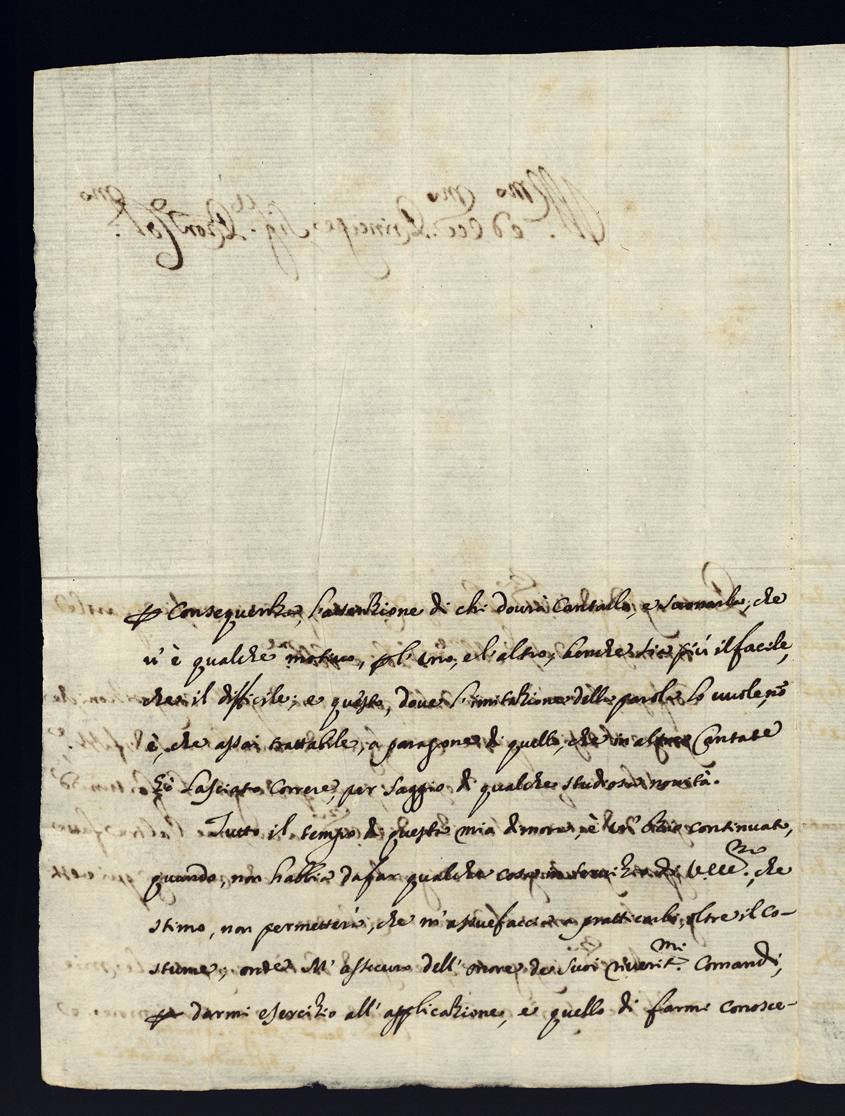 Ill.mo ed Ecc.mo Principe Sig.re e Pron Col.mo
p Consequenza, l'attenzione di chi dovrà Cantalla, e suonarla, che
vi è qualche motivo, p l'uno, e l'altro, benche sia più il facile,
che il difficile; e questo, dove l'imitazione delle parole lo vuole, nō
è, che assai trattabile, a paragone di quello, che in altre Cantate
hò lasciato correre, per saggio di qualche studiosa novità.
Tutto il tempo di questa mia dimora, è un' ozio continuato,
quando, non habbia da far qualche cosa in servizio di V. Ecc.za, che
stimo, non permetterà, che m'assuefaccia a pratticarlo, oltre il co-
stume; onde M' assicuro dell' onore de suoi riverit.mi Comandi,
p darmi esercizio all' applicazione, e quello di farmi conosce-